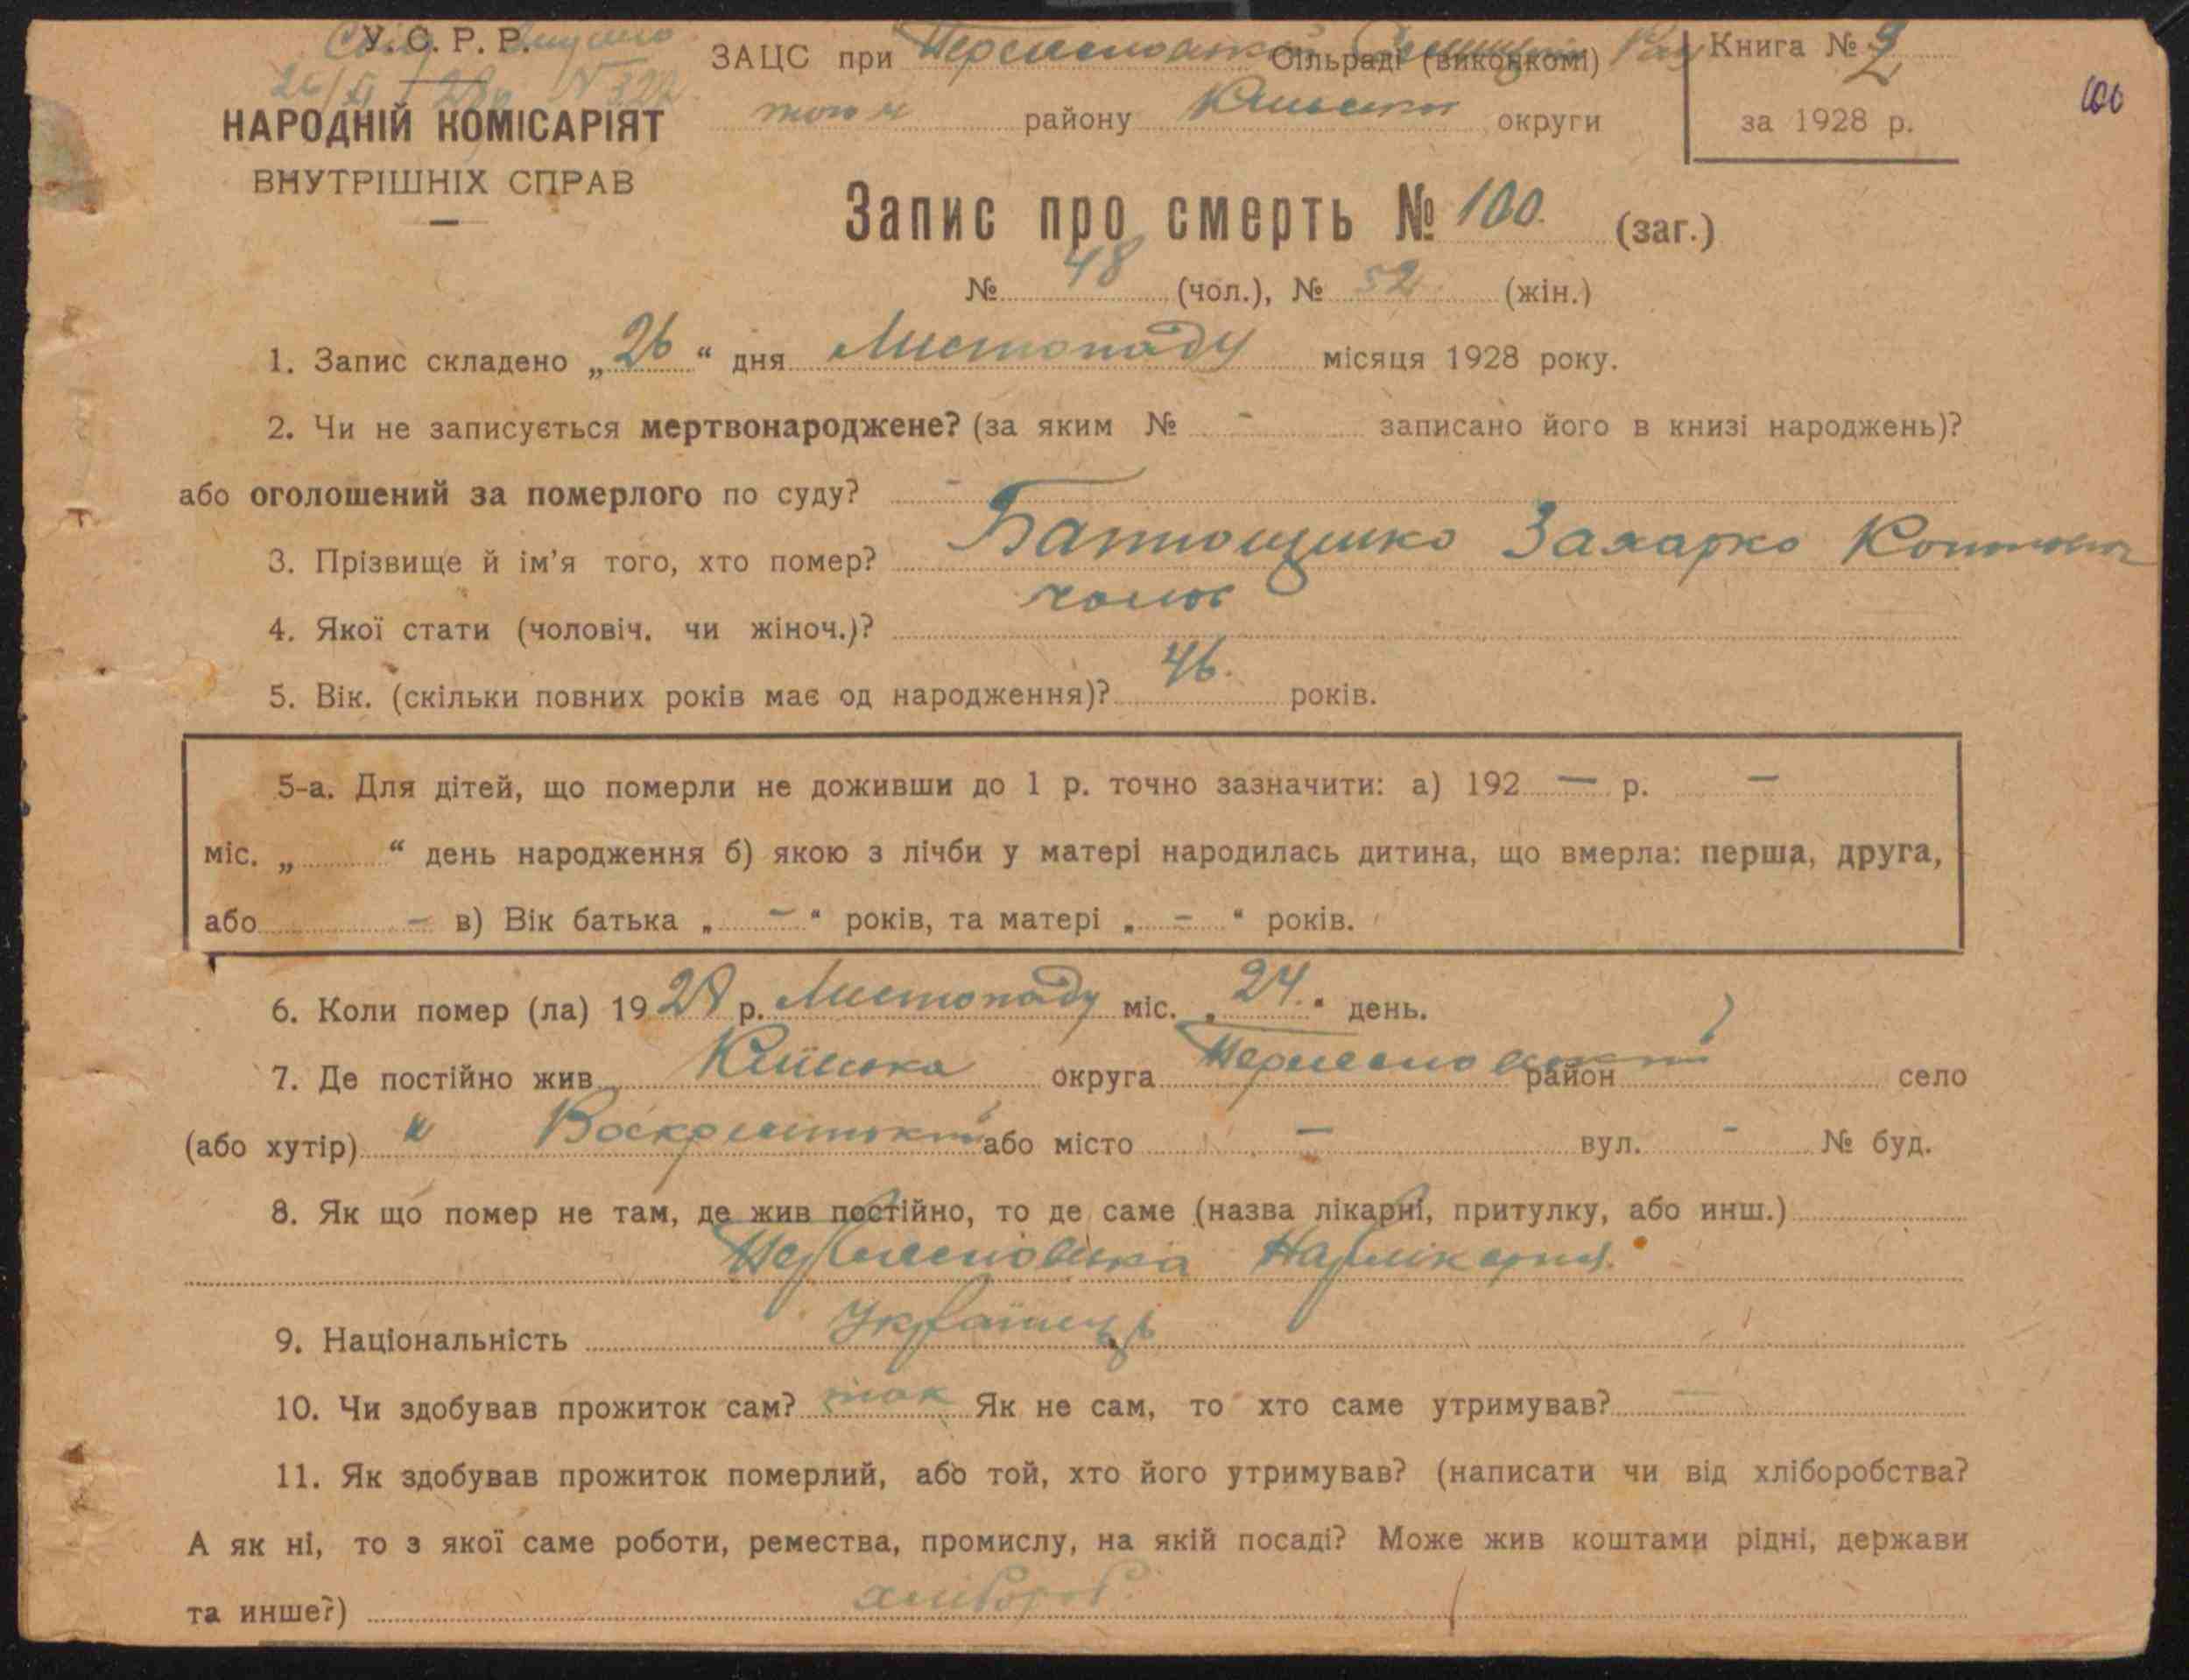 У.С.Р.Р.
26/XI 28р N 322
НАРОДНІЙ КОМІСАРІЯТ
ВНУТРІШНІХ СПРАВ
ЗАЦС при Сільраді (виконкомі)
того ж району Київської округи
Книга № 2
за 1928 р.
Запис про смерть № 100. (заг.)
№ 48 (чол.), № 52 (жін.)
1. Запис складено „26“ дня Листопаду місяця 1928 року.
2. Чи не записується мертвонароджене? (за яким № - записано його в книзі народжень)?
або оголошений за померлого по суду? -
3. Прізвище й ім’я того, хто помер? Захарко
4. Якої стати (чоловіч. чи жіноч.)? чолов
5. Вік. (скільки повних років має од народження)? 46. років.
5-а. Для дітей, що померли не доживши до 1 р. точно зазначити: а) 192 — р. —
міс. „ “ день народження б) якою з лічби у матері народилась дитина, що вмерла: перша, друга,
або - в) Вік батька „ - “ років, та матері „ - “ років.
6. Коли помер (ла) 1928 р. Листопаду міс. „24.“ день.
7. Де постійно жив Київська округа район село
(або хутір) або місто — вул. - № буд.
8. Як що помер не там, де жив постійно, то де саме (назва лікарні, притулку, або инш.)
Нарлікарня.
9. Національність Українець
10. Чи здобував прожиток сам? так Як не сам, то хто саме утримував? —
11. Як здобував прожиток померлий, або той, хто його утримував? (написати чи від хліборобства?
А як ні, то з якої саме роботи, ремества, промислу, на якій посаді? Може жив коштами рідні, держави
та инше?) хлібороб.